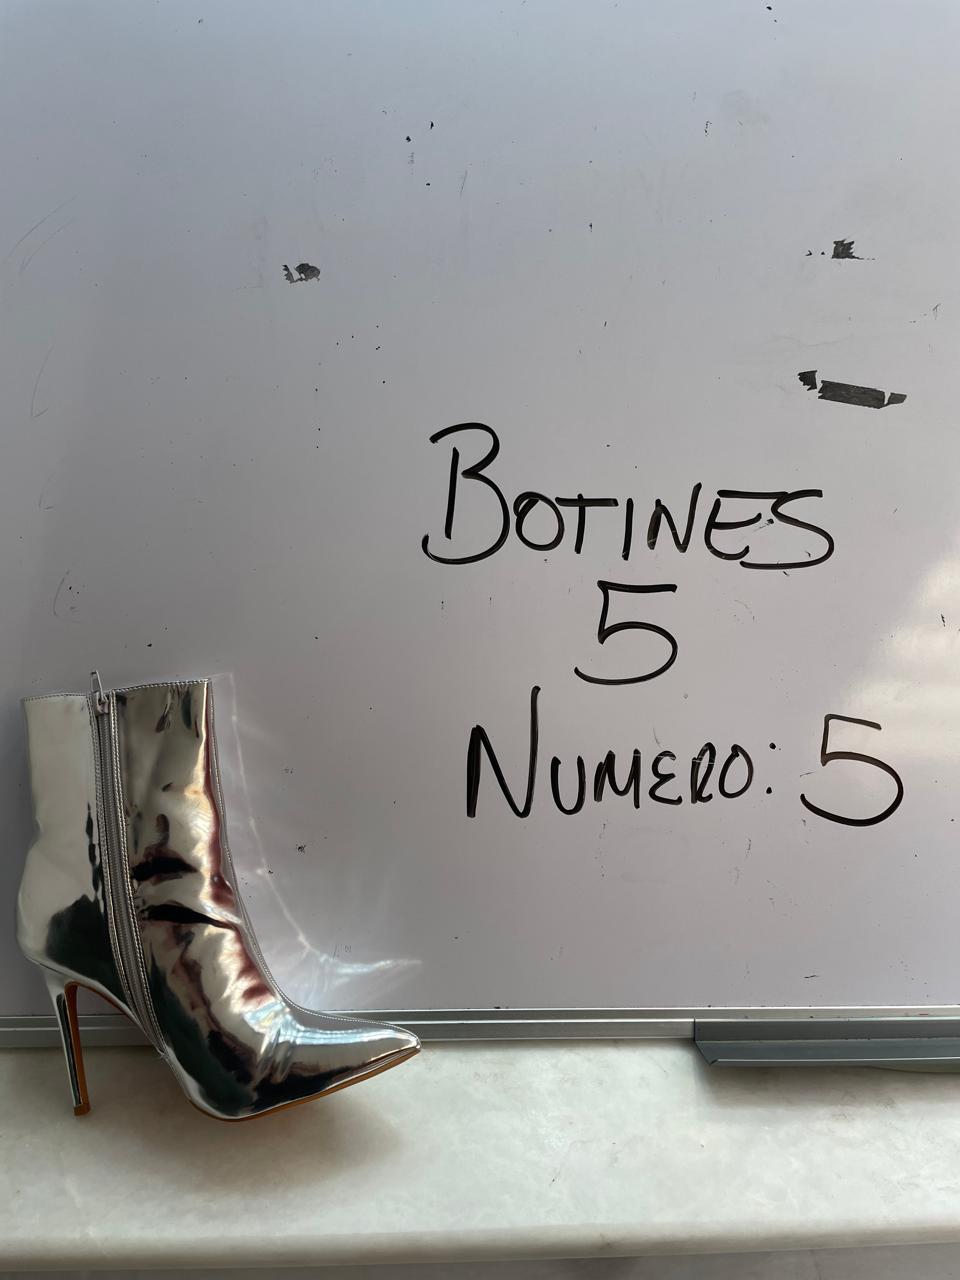 BOTINES
5
NUMERO: 5